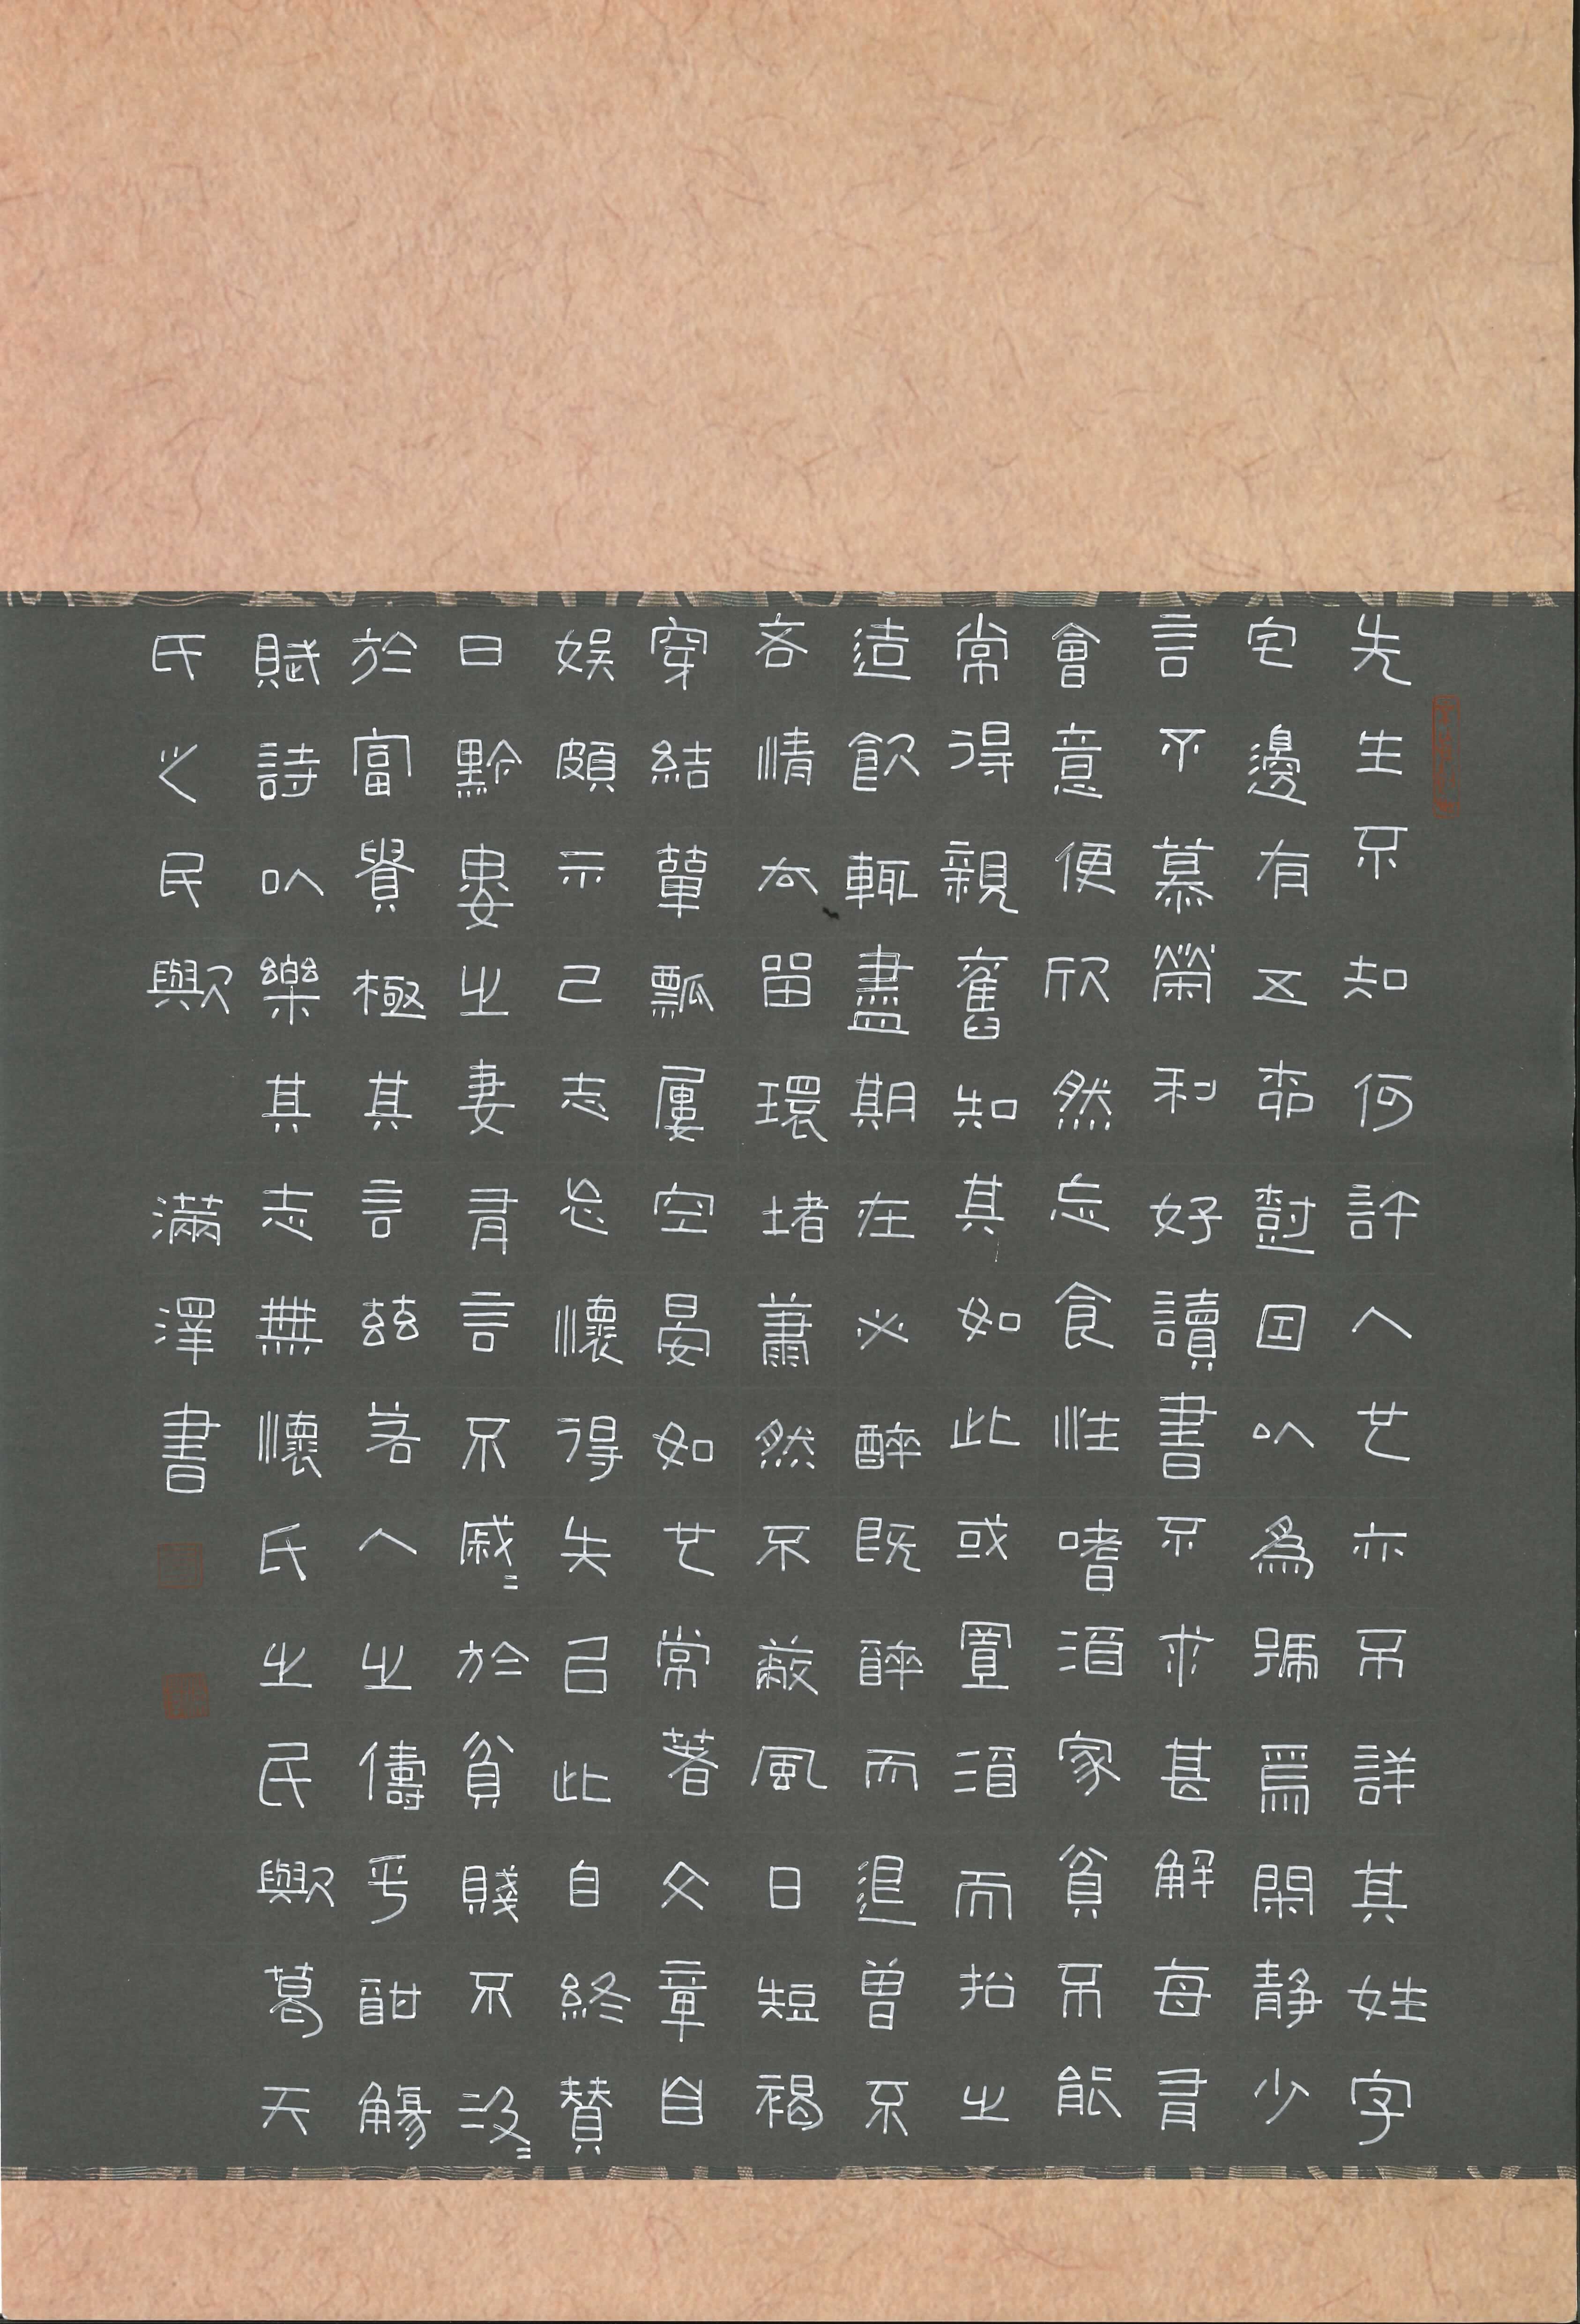 先生不知何許人也亦不詳其姓字
宅邊有五柳樹因以為號焉閑靜少
言不慕榮利好讀書不求甚解每有
會意便欣然忘食性嗜酒家貧不能
常得親舊知其如此或置酒而招之
造飲輒盡期在必醉既醉而退曾不
吝情去留環堵蕭然不蔽風日短褐
穿結簞瓢屢空晏如也常著文章自
娛頗示己志忘懷得失以此自終贊
曰黔婁之妻有言不戚=於貧賤不汲=
於富貴極其言茲若人之儔乎酣觴
賦詩以樂其志無懷氏之民歟葛天
氏之民歟 滿澤書